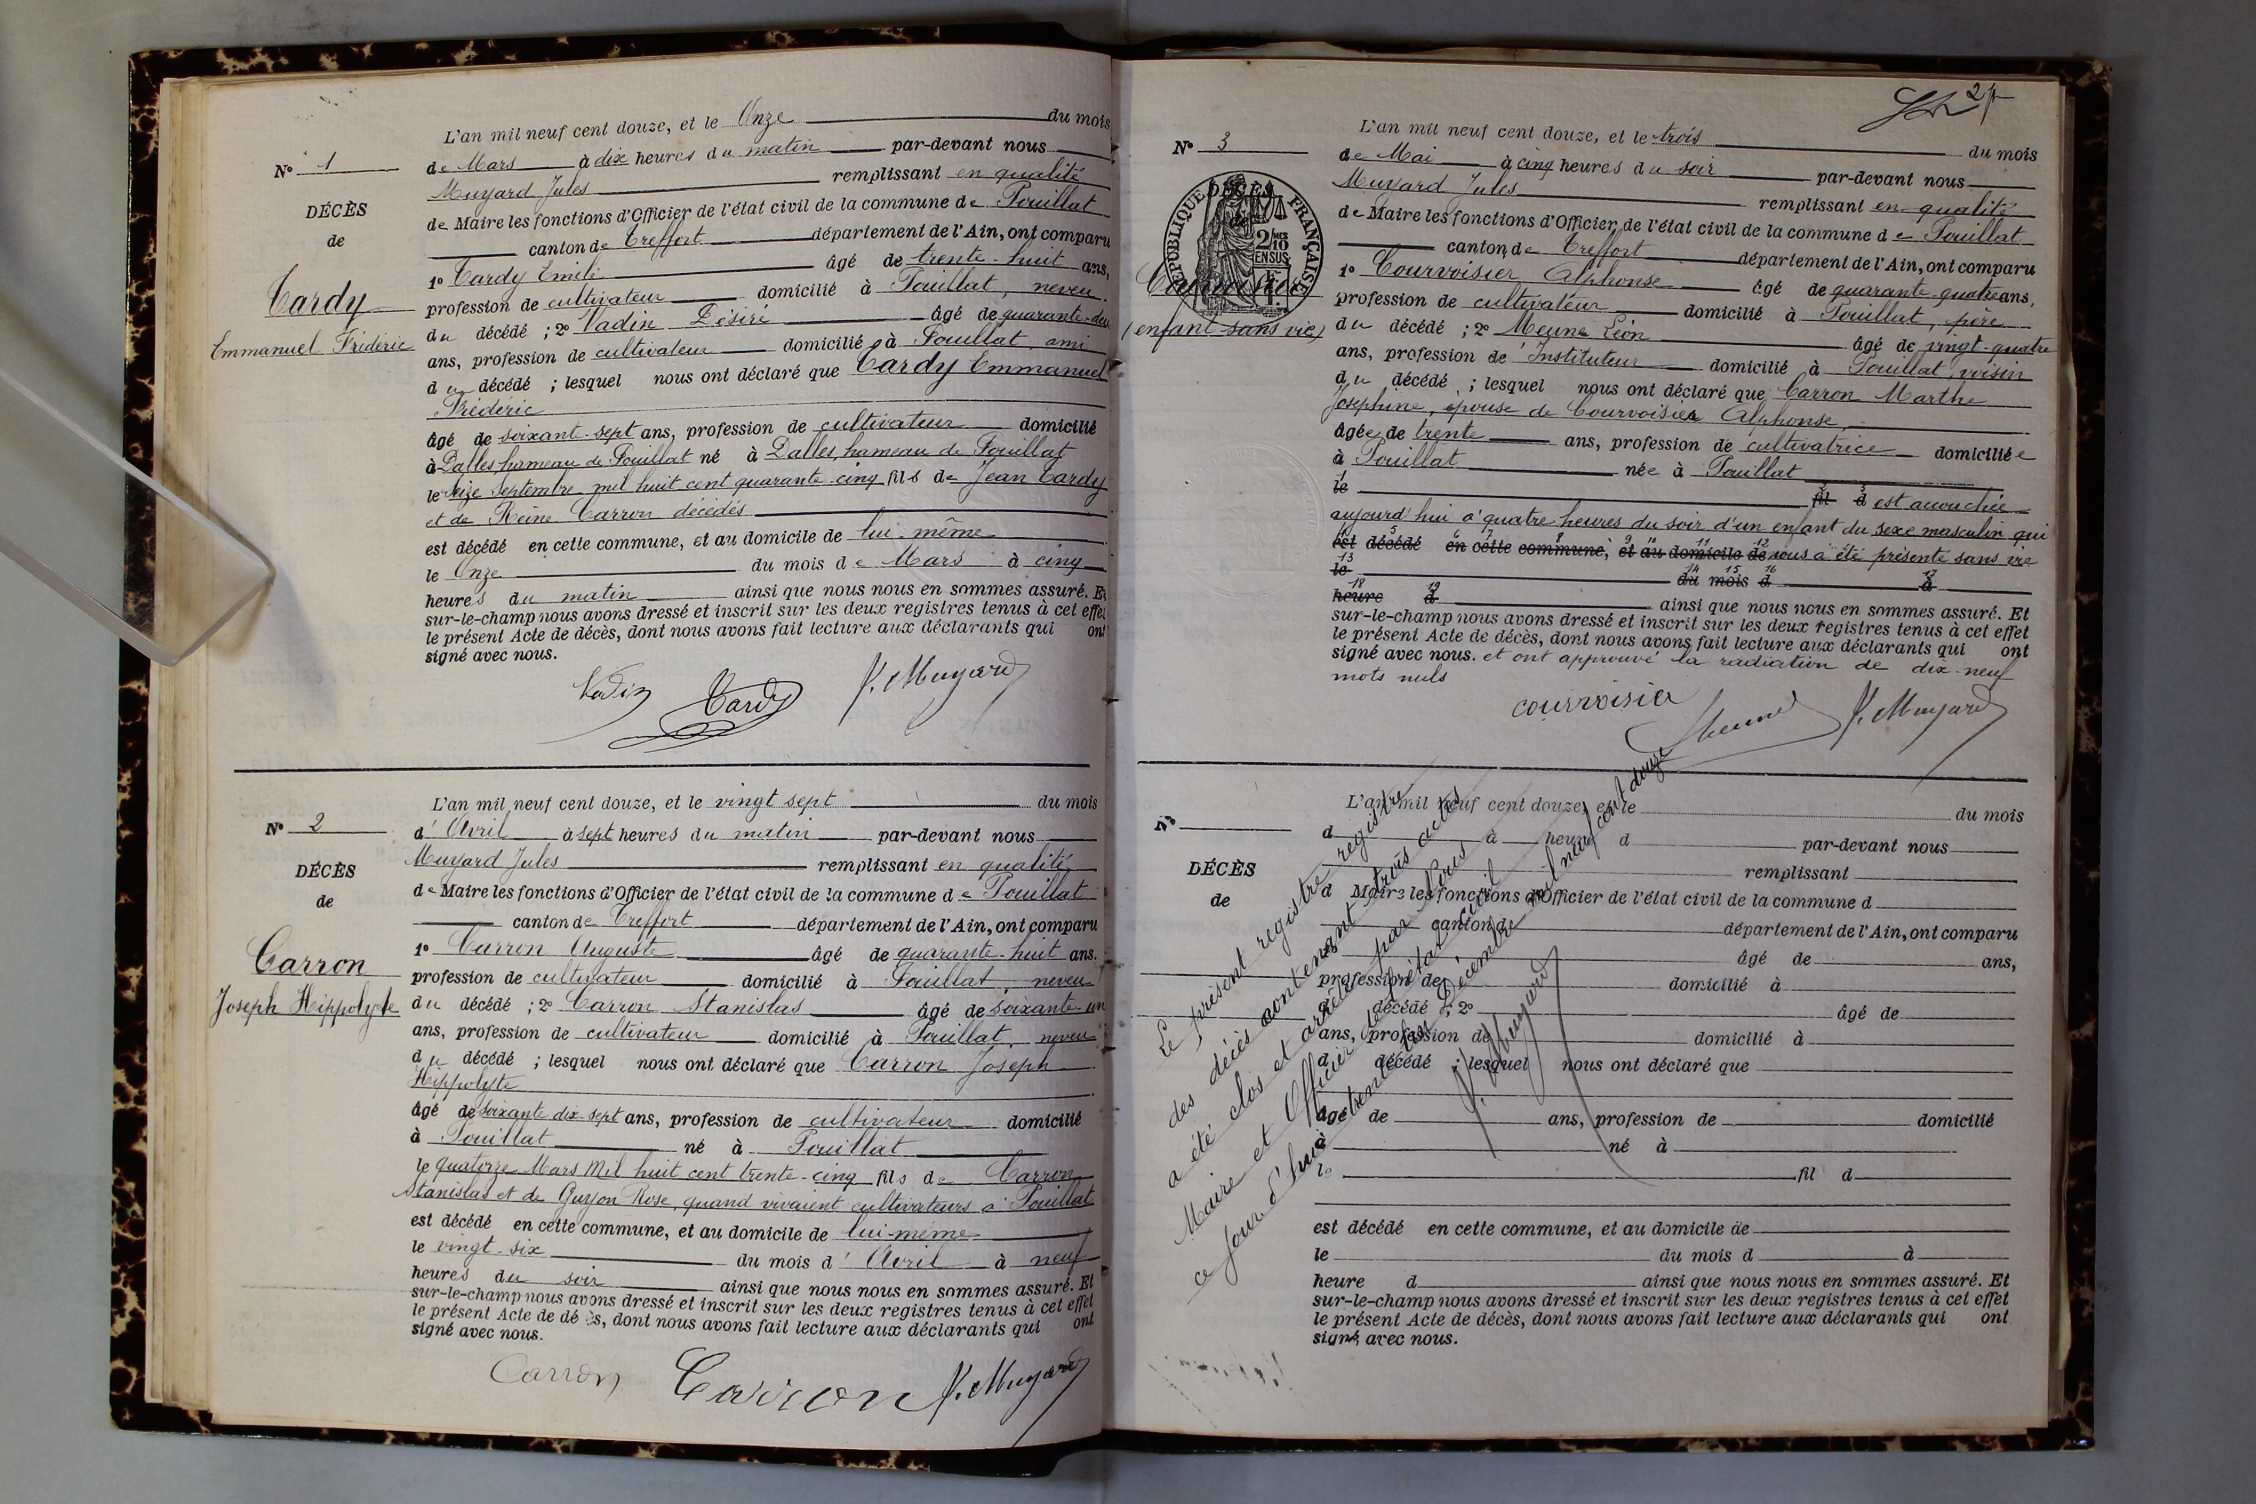 L'an mil neuf cent douze, et le Onze du mois
N° 1
de Mars à dix heures du matin par-devant nous
Muyard Jules remplissant en qualité
DÉCÈS
de Maire les fonctions d'Officier de l'état civil de la commune de Pouillat
de
canton de Treffort département de l'Ain, ont comparu
1° Tardy Emile âgé de trente-huit ans,
Tardy
profession de cultivateur domicilié à Pouillat, neveu
Emmanuel Frédéric
du décédé ; 2° Vadin Désiré âgé de quarante-deux
ans, profession de cultivateur domicilié à Pouillat, ami
du décédé ; lesquel nous ont déclaré que Tardy Emmanuel
Frédéric
âgé de soixante-sept ans, profession de cultivateur domicilié
à Dalles, hameau de Pouillat né à Dalles, hameau de Pouillat
le seize Septembre mil huit cent quarante-cinq fils de Jean Tardy
et de Reine Carron décédés
est décédé en cette commune, et au domicile de lui-même
le Onze du mois de Mars à cinq
heures du matin ainsi que nous nous en sommes assuré. Et
sur-le-champ nous avons dressé et inscrit sur les deux registres tenus à cet effet
le présent Acte de décès, dont nous avons fait lecture aux déclarants qui ont
signé avec nous.
Vadin Tardy J. Muyard
L'an mil neuf cent douze, et le vingt sept du mois
N° 2
d'Avril à sept heures du matin par-devant nous
Muyard Jules remplissant en qualité
DÉCÈS
de Maire les fonctions d'Officier de l'état civil de la commune de Pouillat
de
canton de Treffort département de l'Ain, ont comparu
1° Carron Auguste âgé de quarante-huit ans.
Carron
profession de cultivateur domicilié à Pouillat, neveu
Joseph Hippolyte
du décédé ; 2° Carron Stanislas âgé de soixante-un
ans, profession de cultivateur domicilié à Pouillat, neveu
du décédé ; lesquel nous ont déclaré que Carron Joseph
Hippolyte
âgé de soixante dix-sept ans, profession de cultivateur domicilié
à Pouillat né à Pouillat
le quatorze Mars Mil huit cent trente-cinq fils de Carron
Stanislas et de Guyon Rose, quand vivaient cultivateurs à Pouillat
est décédé en cette commune, et au domicile de lui-même
le vingt-six du mois d'Avril à neuf
heures du soir ainsi que nous nous en sommes assuré. Et
sur-le-champ nous avons dressé et inscrit sur les deux registres tenus à cet effet
le présent Acte de décès, dont nous avons fait lecture aux déclarants qui ont
signé avec nous.
Carron Carron J. Muyard
2
L'an mil neuf cent douze, et le trois du mois
N° 3
de Mai à cinq heures du soir par-devant nous
Muyard Jules remplissant en qualité
DÉCÈS
RÉPUBLIQUE FRANÇAISE
2/10 EN SUS
de Maire les fonctions d'Officier de l'état civil de la commune de Pouillat
canton de Treffort département de l'Ain, ont comparu
1° Courvoisier Alphonse âgé de quarante-quatre ans,
Courvoisier
profession de cultivateur domicilié à Pouillat, père
(enfant sans vie)
du décédé ; 2° Meune Léon âgé de vingt-quatre
ans, profession de Instituteur domicilié à Pouillat, voisin
du décédé ; lesquel nous ont déclaré que Carron Marthe
Joséphine, épouse de Courvoisier Alphonse,
âgée de trente ans, profession de cultivatrice domiciliée
à Pouillat née à Pouillat
1 2 3
le fil d est accouchée
aujourd'hui à quatre heures du soir d'un enfant du sexe masculin qui
4 5 6 7 8 9 10 11 12
est décédé en cette commune, et au domicile de nous a été présenté sans vie
13 14 15 16 17
le du mois d à
18 19
heure d ainsi que nous nous en sommes assuré. Et
sur-le-champ nous avons dressé et inscrit sur les deux registres tenus à cet effet
le présent Acte de décès, dont nous avons fait lecture aux déclarants qui ont
signé avec nous. et ont approuvé la radiation de dix-neuf
mots nuls
courvoisier Meune J. Muyard
L'an mil neuf cent douze, et le du mois
N°
d à heure d par-devant nous
remplissant
DÉCÈS
d Maire les fonctions d'Officier de l'état civil de la commune d
de
canton d département de l'Ain, ont comparu
âgé de ans,
profession de domicilié à
décédé ; 2° âgé de
ans, profession de domicilié à
d décédé ; lesquel nous ont déclaré que
âgé de ans, profession de domicilié
à né à
le fil d
est décédé en cette commune, et au domicile de
le du mois d à
heure d ainsi que nous nous en sommes assuré. Et
sur-le-champ nous avons dressé et inscrit sur les deux registres tenus à cet effet
le présent Acte de décès, dont nous avons fait lecture aux déclarants qui ont
signé avec nous.
Le présent registre registre
des décès contenant trois actes
a été clos et arrêté par Nous
Maire et Officier de l'état civil
ce jour d'hui trente un Décembre mil neuf cent douze
J. Muyard